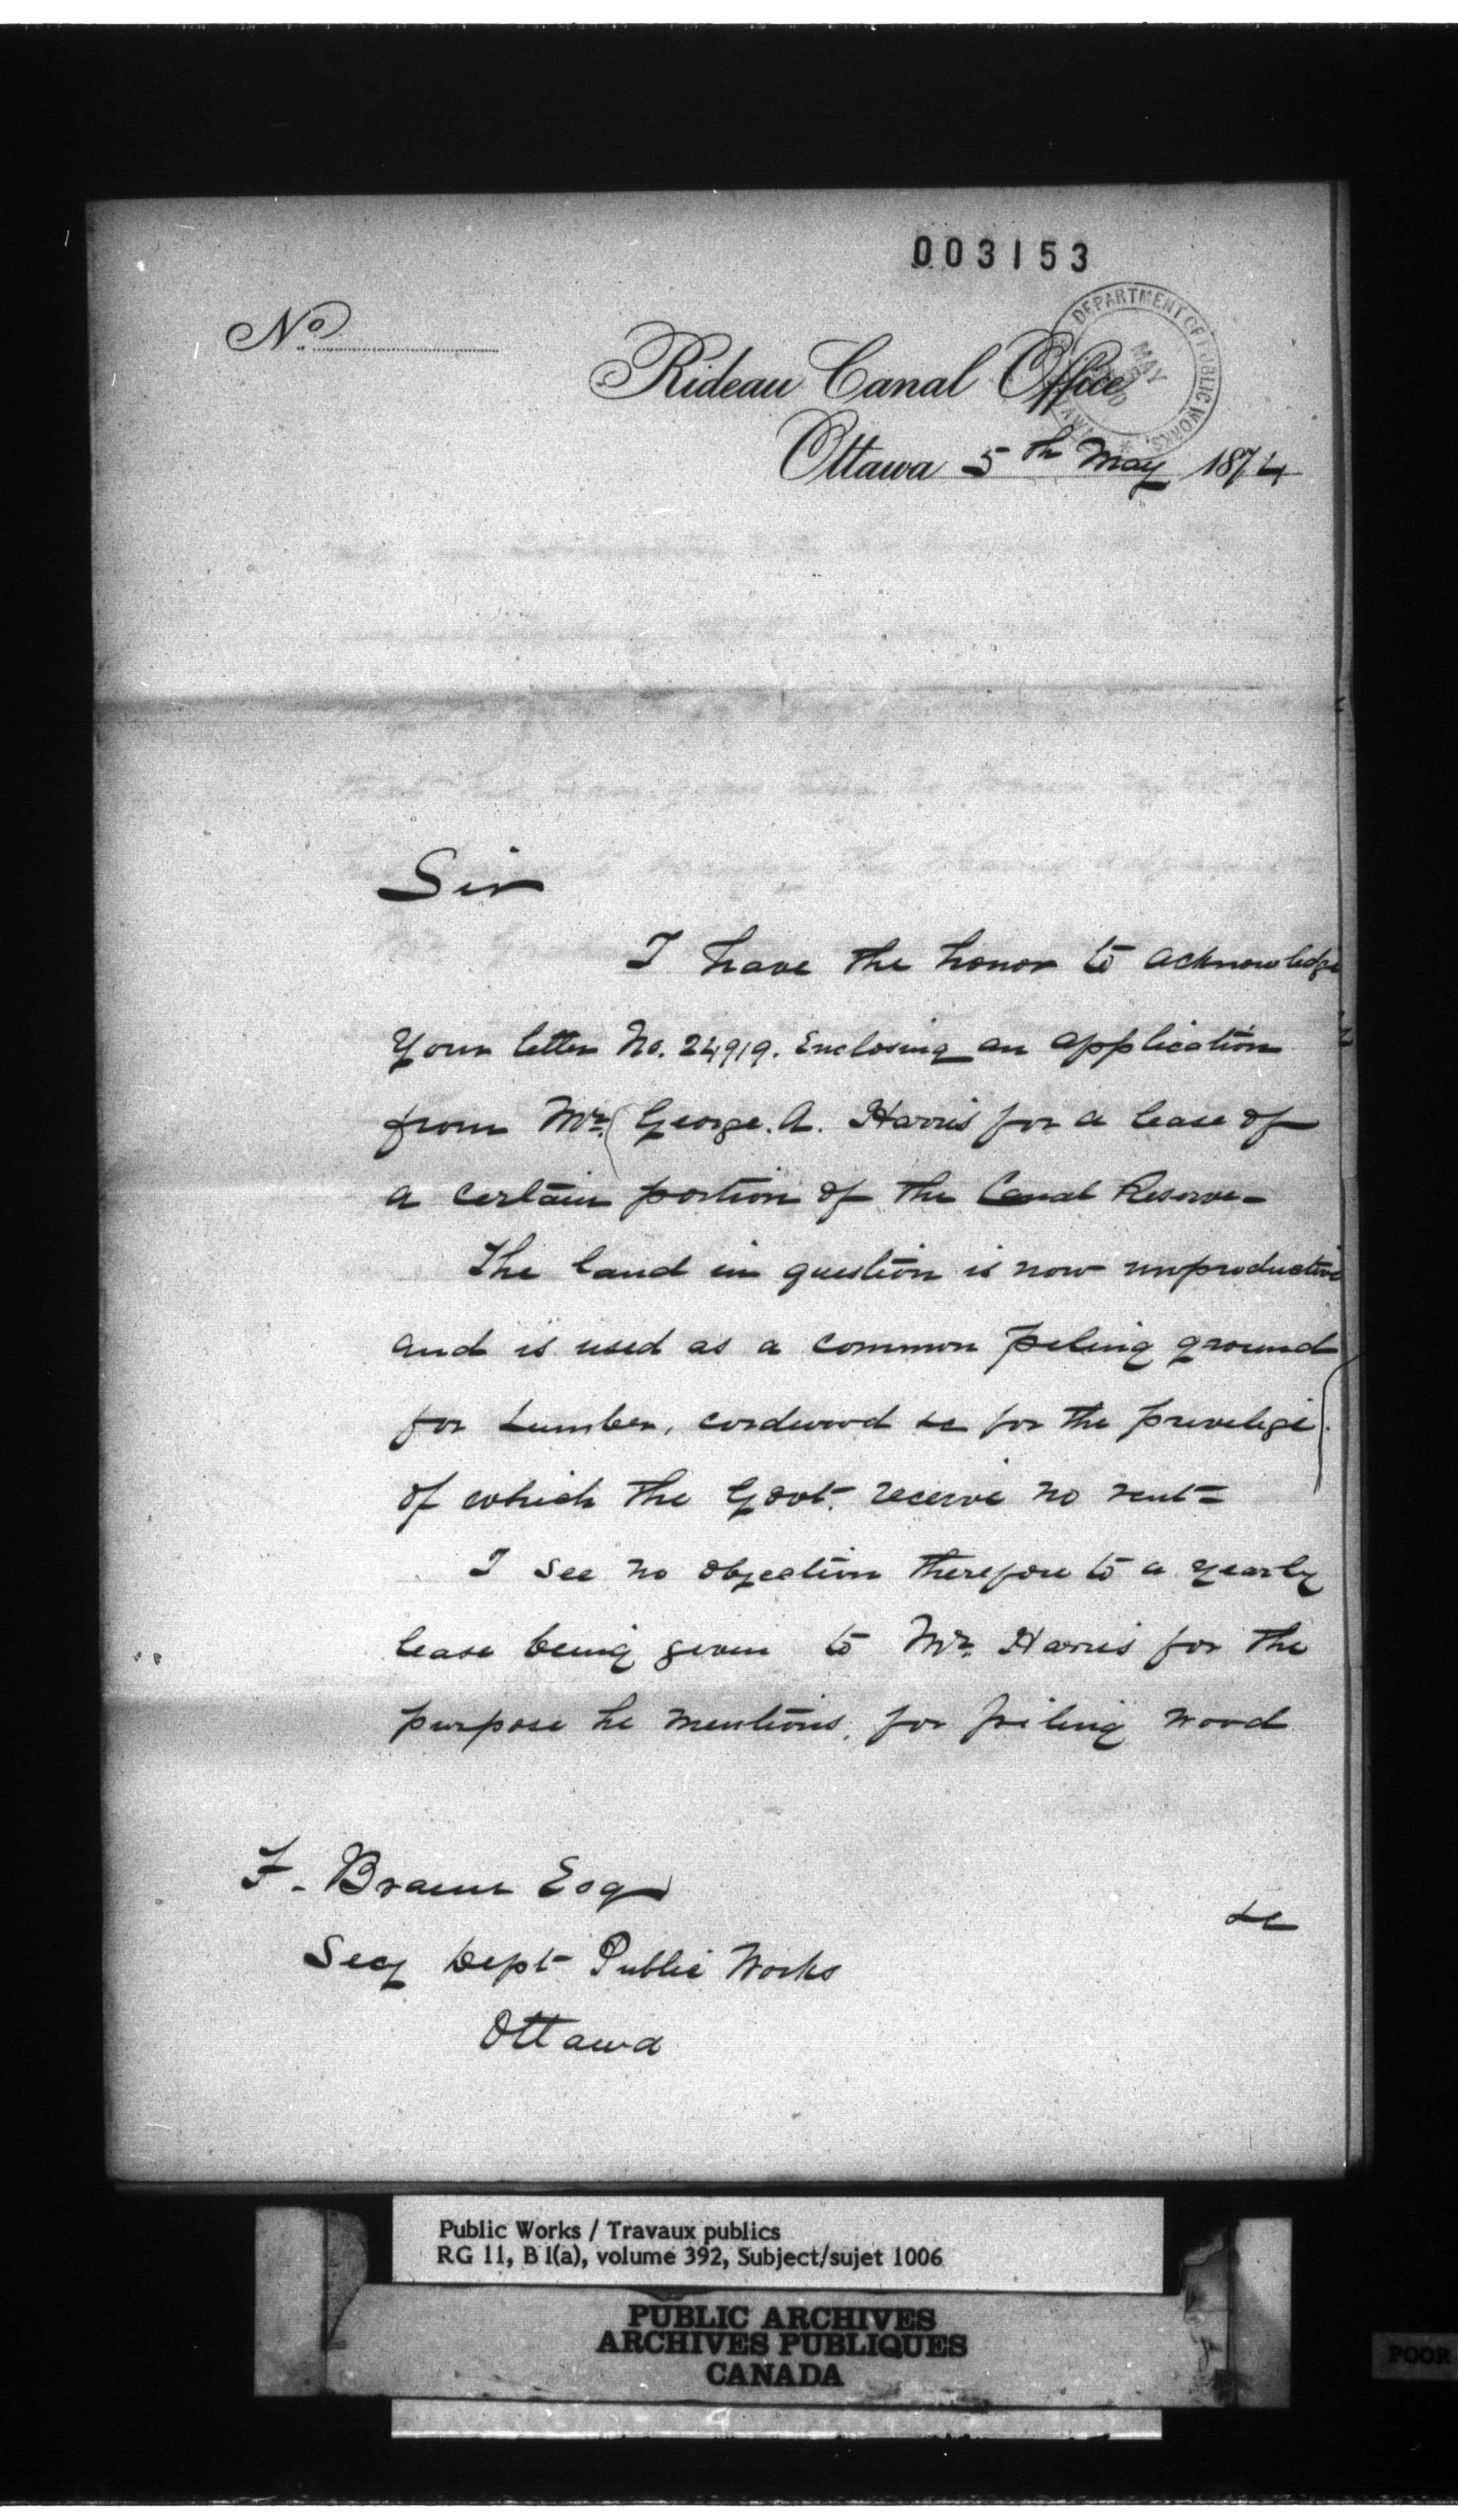 003153
No
DEPARTMENT OF PUBLIC WORKS,
MAY
Rideau Canal Office
Ottawa 5th May 1874
Sir
I have the honor to acknowledge
Your letter No. 24919. Enclosing an application
from Mr. George. A. Harris for a lease of
a certain portion of the Canal Reserve -
The land in question is now unproductive
and is used as a common piling ground
for Lumber, cordwood &c for the privelige
of which the Govt. receive no rent =
I see no objection therefore to a yearly
lease being given to Mr. Harris for the
purpose he mentions, for piling wood
&c
F. Braun Esq
Secy Dept Public Works
Ottawa
Public Works / Travaux publics
RG 11, B 1(a), volume 392, Subject/sujet 1006
PUBLIC ARCHIVES
ARCHIVES PUBLIQUES
CANADA
POOR